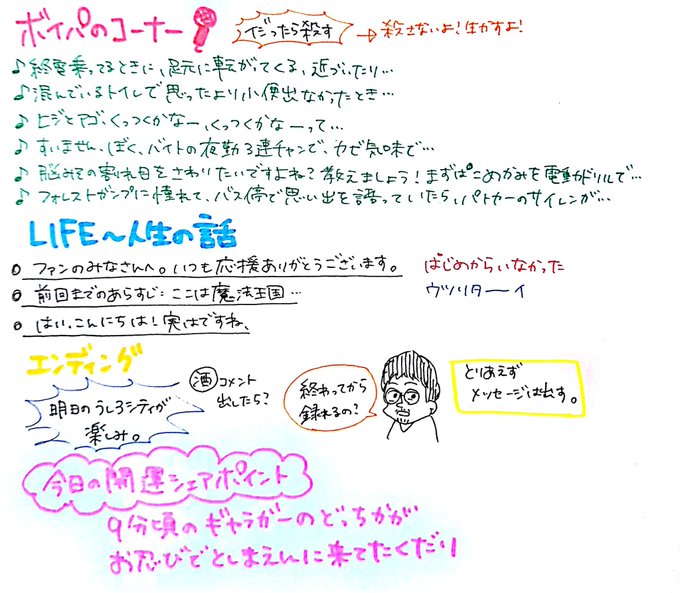 ボイパのコーナー
だったら殺す
→殺さないよ!生かすよ!
♪終電乗ってるときに、足元に転がてくる、近づいたり…
♪混んでいるトイレで思ったより小便出なかったとき…
♪ヒジとアゴ、くっつくかなー、くっつくかなーって…
♪すいません、ぼく、バイトの夜勤3連チャンで、カゼ気味で…
♪脳みその割れ目をさわりたいですよね?教えましょう!まずはこめかみを電動ドリルで…
♪フォレストガンプに憧れて、バス停で思い出を語っていたら、パトカーのサイレンが…
LIFE〜人生の話
○ ファンのみなさんへ。いつも応援ありがとうございます。
はじめからいなかった
○ 前回までのあらすじ:ここは魔法王国…
ウツリターイ
○ はい、こんにちは!実はですね、
エンディング
明日のうしろシティが
楽しみ。
酒コメント
出したら?
終わってから
録れるの?
とりあえず
メッセージは出す。
今日の開運シェアポイント
9分頃のギャラガーのどっちかが
お忍びでとしまえんに来てたくだり